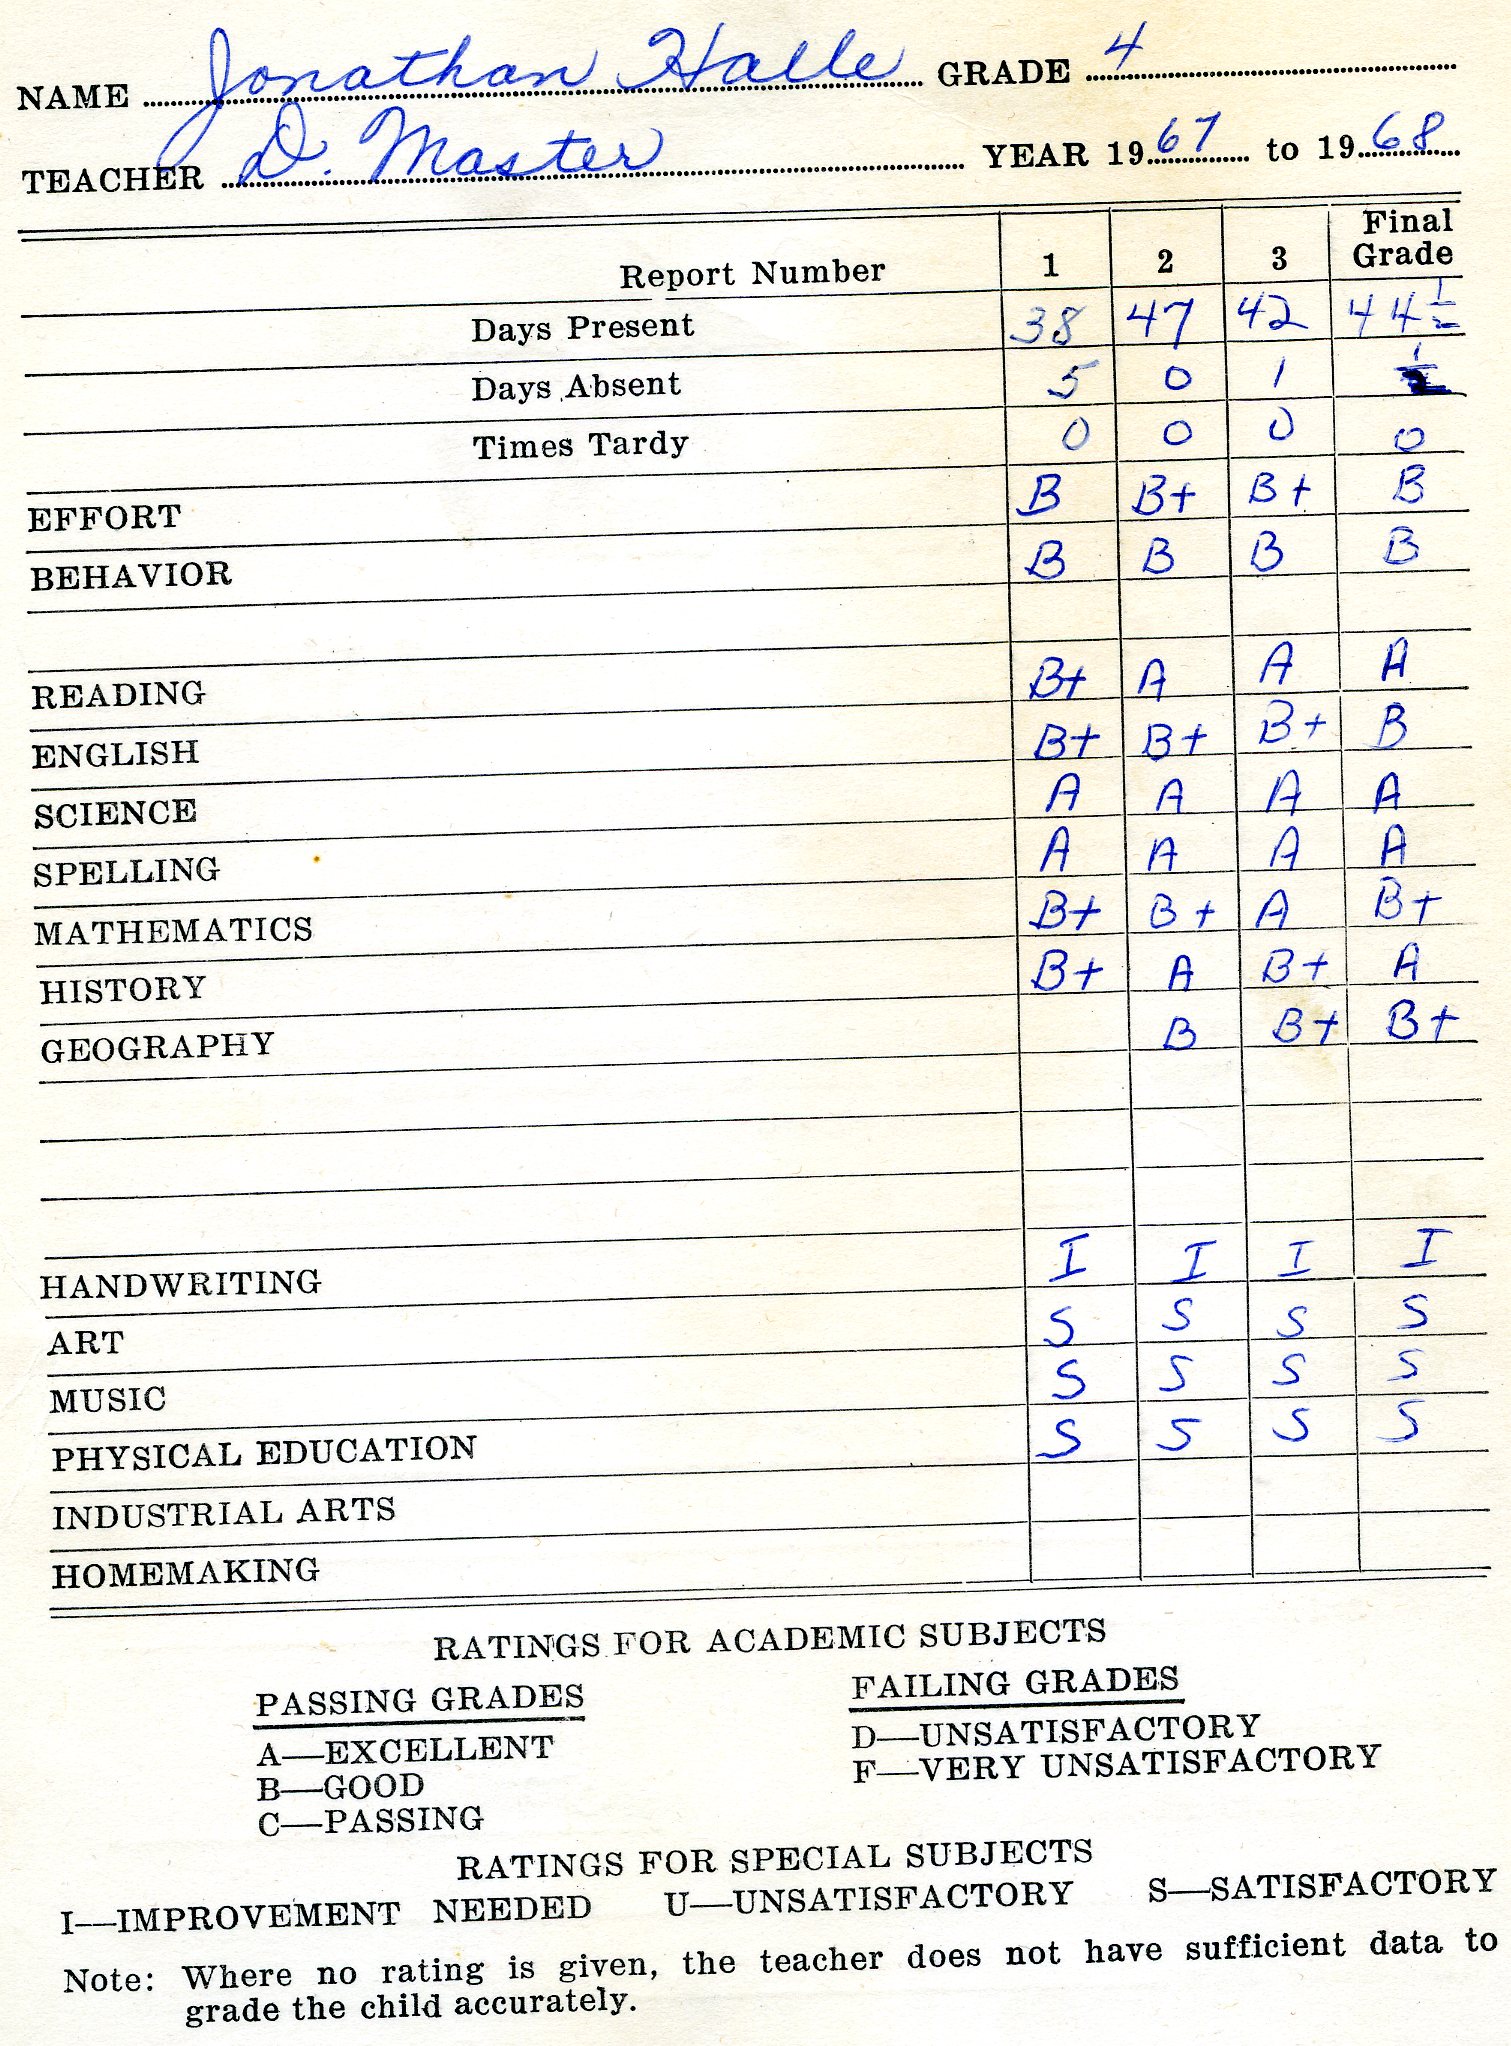 NAME Jonathan Halle GRADE 4
TEACHER D. Master YEAR 1967 to 1968
Report Number 1 2 3 Final Grade
Days Present 38 47 42 44 1/2
Days Absent 5 0 1
Times Tardy 0 0 0 0
EFFORT B B+ B+ B
BEHAVIOR B B B B
READING B+ A A A
ENGLISH B+ B+ B+ B
SCIENCE A A A A
SPELLING A A A A
MATHEMATICS B+ B+ A B+
HISTORY B+ A B+ A
GEOGRAPHY B B+ B+
HANDWRITING I I I I
ART S S S S
MUSIC S S S S
PHYSICAL EDUCATION S S S S
INDUSTRIAL ARTS
HOMEMAKING
RATINGS FOR ACADEMIC SUBJECTS
PASSING GRADES
A—EXCELLENT
B—GOOD
C—PASSING
FAILING GRADES
D—UNSATISFACTORY
F—VERY UNSATISFACTORY
RATINGS FOR SPECIAL SUBJECTS
I—IMPROVEMENT NEEDED U—UNSATISFACTORY S—SATISFACTORY
Note: Where no rating is given, the teacher does not have sufficient data to
grade the child accurately.